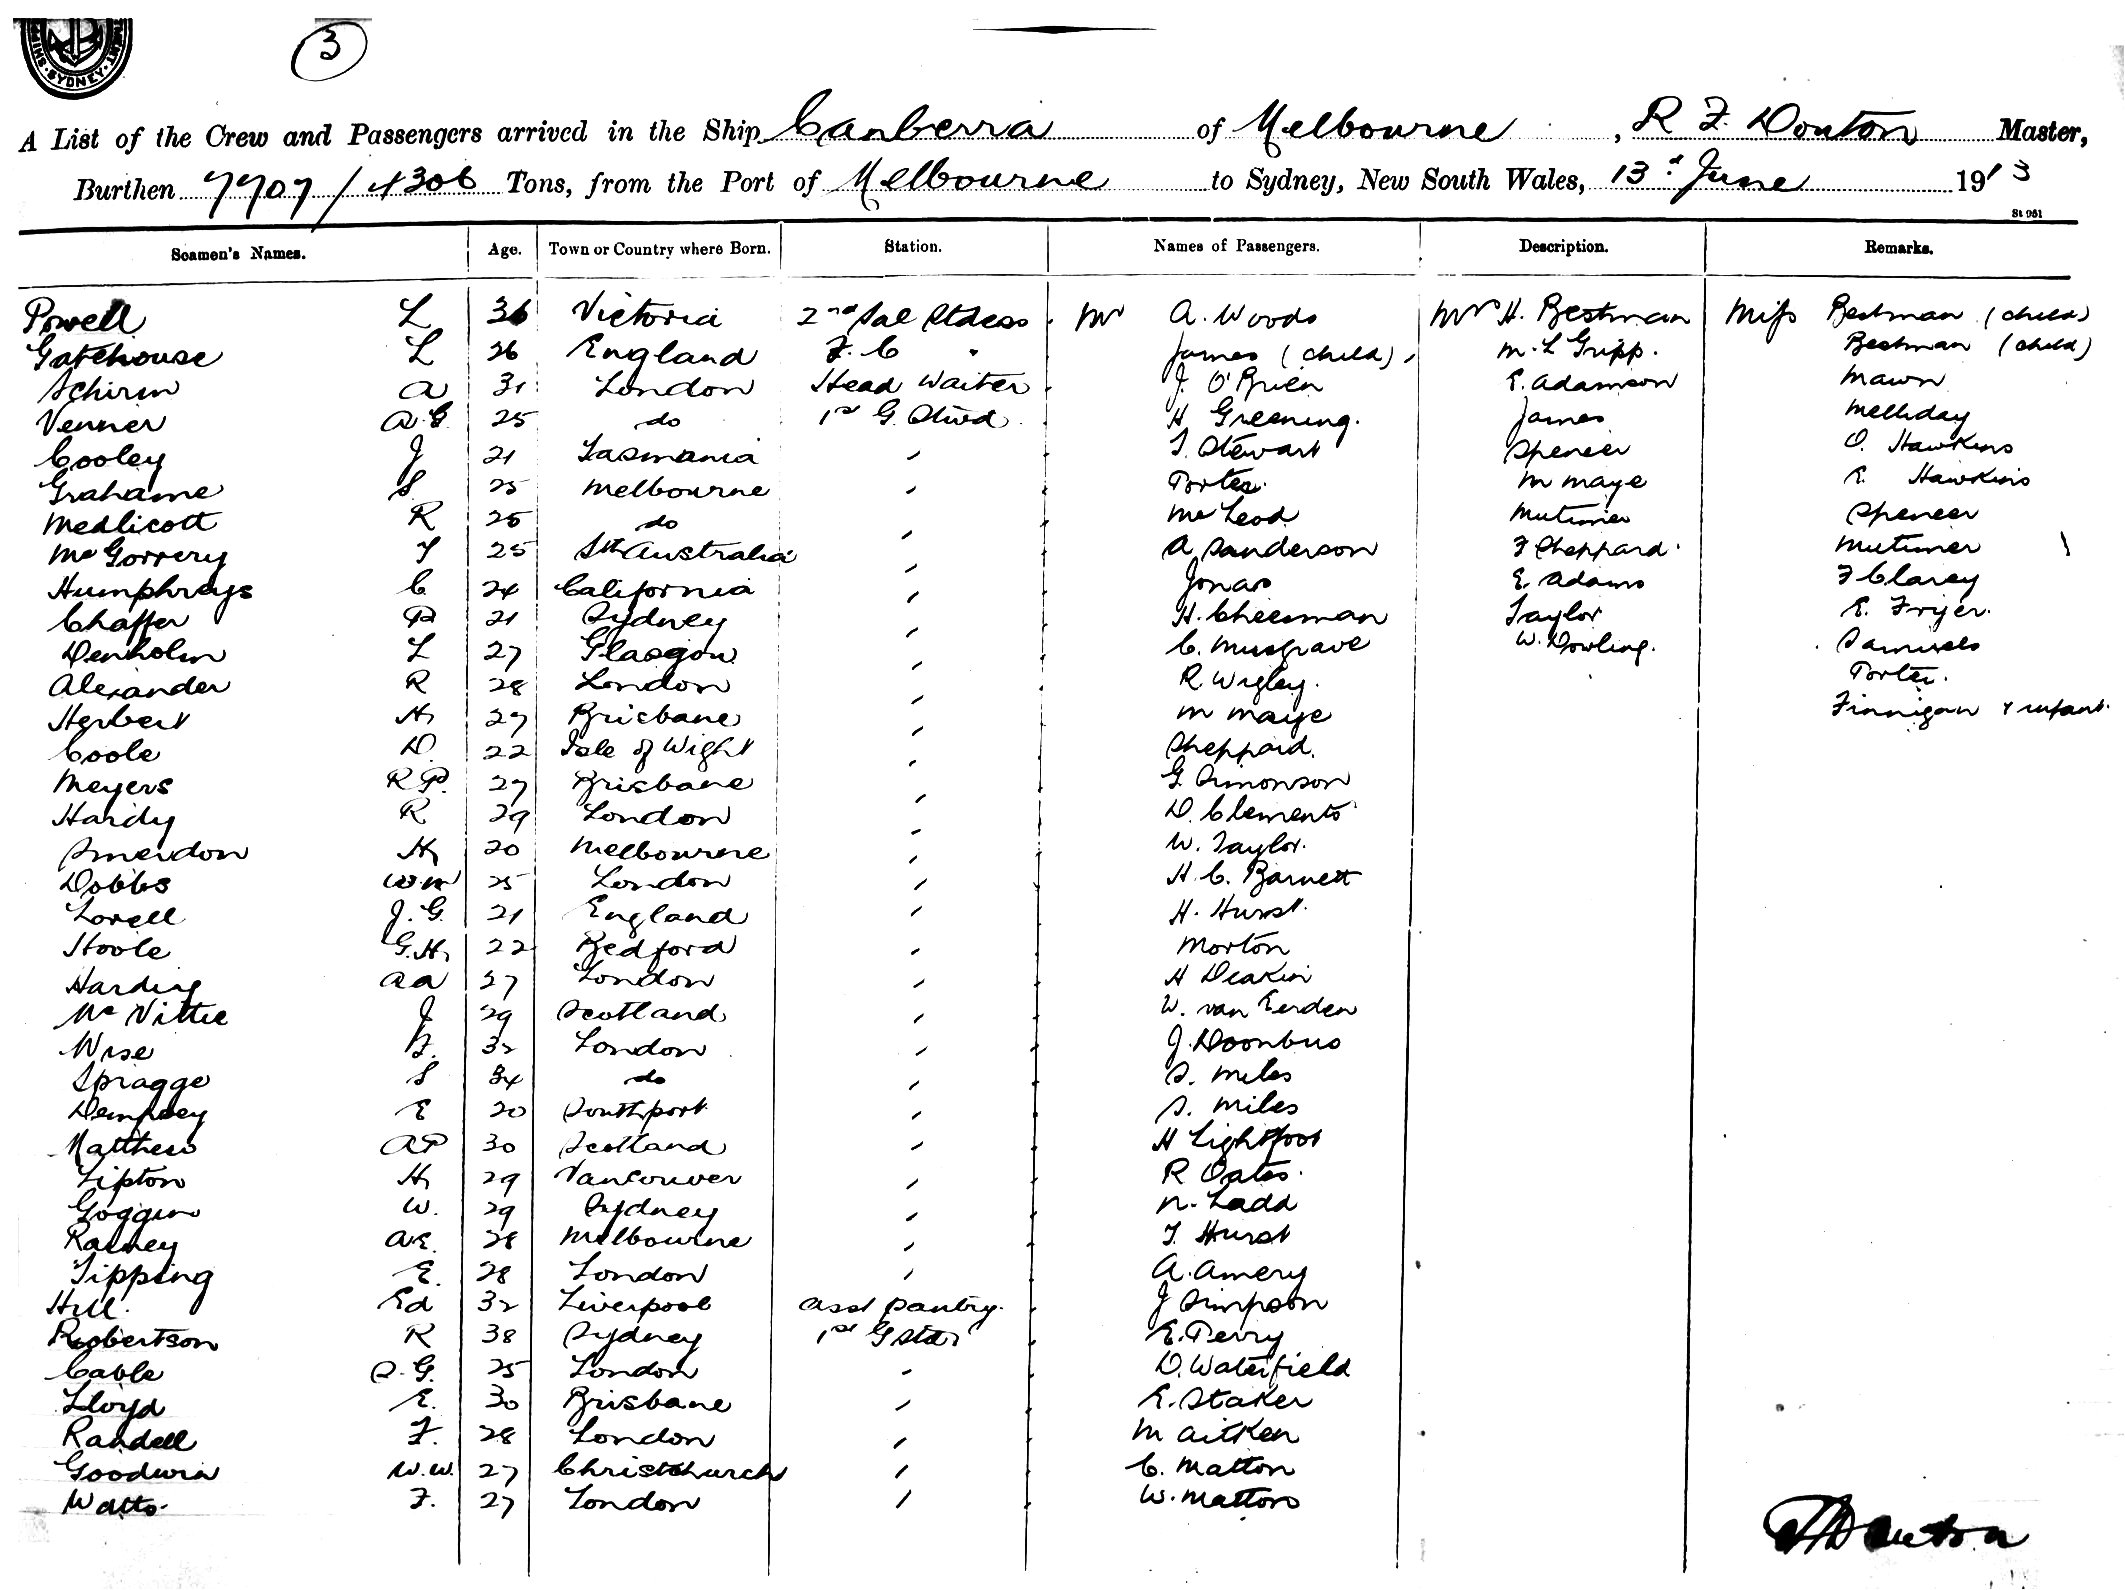 SYDNEY
3
A List of the Crew and Passengers arrived in the Ship Canberra of Melbourne, R F. Donton Master,
Burthen 7707/4306 Tons, from the Port of Melbourne to Sydney, New South Wales, 13th June 1913
St 951
Seamen's Names. Age. Town or Country where Born. Station. Names of Passengers. Description. Remarks.
Powell L 36 Victoria 2nd Sal Stdess Mr A. Woods Mrs H. Bestman Miss Bestman (child)
Gatehouse L 26 England F. C " James (child) M. L Gripp. Bestman (child)
Schirm A 31 London Head Waiter J. O'Brien E. Adamson Mawn
Venner A.G 25 do 1st G. Stwd H Greening. James Melliday
Cooley J 21 Tasmania " T. Stewart Spencer O. Hawkins
Grahame S 25 Melbourne " Porter. M Maye E. Hawkins
Medlicott R 25 do " McLeod Mutimer Spencer
McGorrery T 25 Sth Australia " A Sanderson F Sheppard. Mutimer
Humphreys C 24 California " Jonas E. Adams F Clarey
Chaffer P 21 Sydney " H. Cheesman Taylor E. Fryer.
Denholm L 27 Glasgow " C. Musgrave W. Dowling. Samuels
Alexander R 28 London " R. Wigley. Porter.
Herbert H 27 Brisbane " M Maye Finnigan & infant
Coole D. 22 Isle of Wight " Sheppard.
Meyers R P. 27 Brisbane " G. Simonson
Hardy R 29 London " D. Clements
Smerdon H 20 Melbourne " W. Taylor.
Dobbs Wm 25 London " H. C. Barnett
Lovell J. G. 21 England " H. Hurst.
Hoole G.H. 22 Bedford " Morton
Harding A A 27 London " H Deakin
McVittie J 29 Scotland " W. van Eerden
Wise 32 London " J. Doonbus
Spragge S 34 do " S. Miles
Dempsey E 20 Southport " S. Miles
Matthew A P 30 Scotland " H Lightfoot
Lipton H 29 Vancouver " R Oates.
Goggin W. 29 Sydney " N. Ladd
Ramey A E. 28 Melbourne " T. Hurst
Tipping E. 28 London " A. Amery
Hill. Ed 32 Liverpool Asst Pantry. J Simpson
Robertson R 38 Sydney 1st G Std E. Perry
Cable S. G. 25 London " D. Waterfield
Lloyd E. 30 Brisbane " E. Staker
Randell F. 28 London " M Aitken
Goodwin W. W. 27 Christchurch " C. Matton
Watts. F. 27 London " W. Mattors
Donton